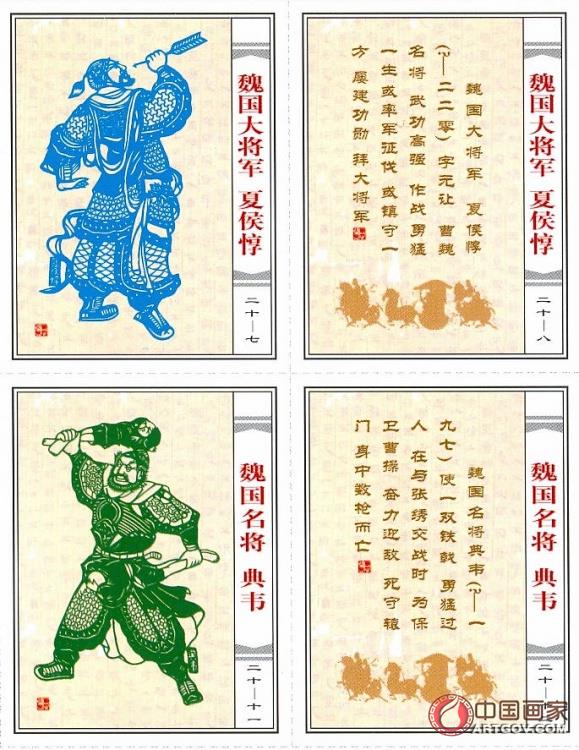 魏国大将军 夏侯惇
二十—七
魏国大将军 夏侯惇
二十—八
魏国大将军 夏侯惇
(?—二二零) 字元让 曹魏
名将 武功高强 作战勇猛
一生或率军征伐 或镇守一
方 屡建功勋 拜大将军
魏国名将 典韦
二十—十一
魏国名将 典韦
二十—
魏国名将典韦(?—一
九七) 使一双铁戟 勇猛过
人 在与张绣交战时 为保
卫曹操 奋力迎敌 死守辕
门 身中数枪而亡
中国画家
ARTGOV.COM